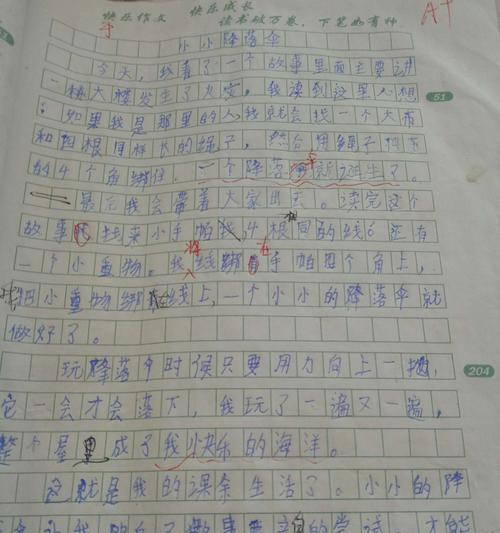 快乐作文 快乐成长
读书破万卷，下笔如有神
A+
小小降落伞
今天，我看了一个故事里面主要讲
一栋大楼发生了火灾。我读到这里心想
：如果我是那里的人，我就会找一个大布
和四根同样长的绳子，然后用绳子将布
的4个角绑住，一个降落伞就诞生了。
51
最后我会带着大家出去。读完这个
故事我找来小手帕 4根相同的线 还有
一个小重物。我将线绑在手帕四个角上，
把小重物绑在线上，一个小小的降落伞就
做好了。
玩降落伞时候只要用力向上一抛，
204
它一会才会落下，我玩了一遍又一遍，
整个屋里成了我快乐的海洋。
这就是我的课余生活了。小小的降
让我明白了 的尝试，才能